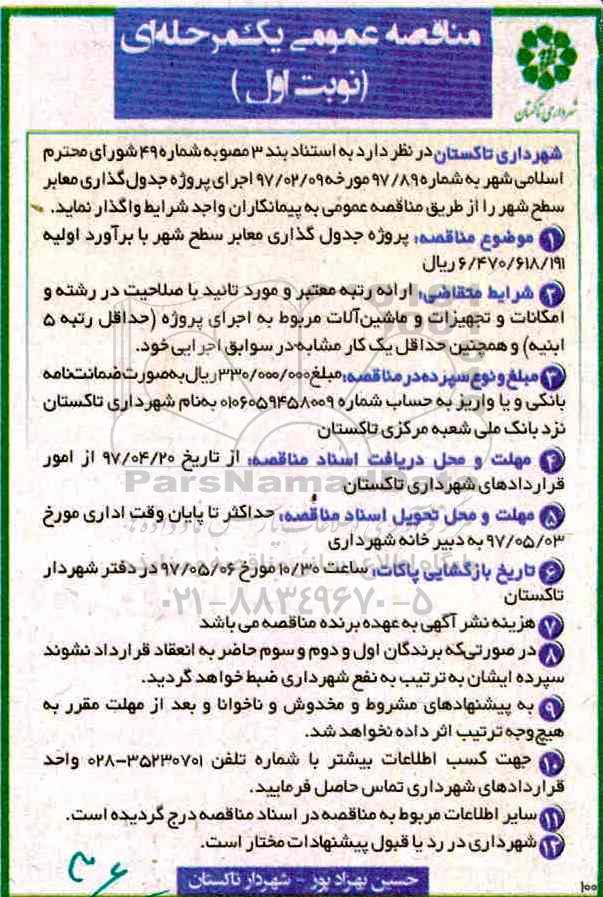 مناقصه عمومی یک‌مرحله‌ای
(نوبت اول)
شهرداری تاکستان
شهرداری تاکستان در نظر دارد به استناد بند ۳ مصوبه شماره ۴۹ شورای محترم
اسلامی شهر به شماره ۹۷/۸۹ مورخه ۹۷/۰۲/۰۹ اجرای پروژه جدول‌گذاری معابر
سطح شهر را از طریق مناقصه عمومی به پیمانکاران واجد شرایط واگذار نماید.
۱ موضوع مناقصه: پروژه جدول گذاری معابر سطح شهر با برآورد اولیه
۶/۴۷۰/۶۱۸/۱۹۱ ریال
۲ شرایط متقاضی: ارائه رتبه معتبر و مورد تائید با صلاحیت در رشته و
امکانات و تجهیزات و ماشین‌آلات مربوط به اجرای پروژه (حداقل رتبه ۵
ابنیه) و همچنین حداقل یک کار مشابه در سوابق اجرایی خود.
۳ مبلغ و نوع سپرده در مناقصه: مبلغ ۳۳۰/۰۰۰/۰۰۰ ریال به صورت ضمانت‌نامه
بانکی و یا واریز به حساب شماره ۰۱۰۶۰۵۹۴۵۸۰۰۹ به‌نام شهرداری تاکستان
نزد بانک ملی شعبه مرکزی تاکستان
۴ مهلت و محل دریافت اسناد مناقصه: از تاریخ ۹۷/۰۴/۲۰ از امور
قراردادهای شهرداری تاکستان
ParsNamadData
۵ مهلت و محل تحویل اسناد مناقصه: حداکثر تا پایان وقت اداری مورخ
۹۷/۰۵/۰۳ به دبیر خانه شهرداری
۶ تاریخ بازگشایی پاکات: ساعت ۱۰/۳۰ مورخ ۹۷/۰۵/۰۶ در دفتر شهردار
تاکستان
۰۲۱-۸۸۳۴۹۶۷۰-۵
۷ هزینه نشر آگهی به عهده برنده مناقصه می باشد
۸ در صورتی‌که برندگان اول و دوم و سوم حاضر به انعقاد قرارداد نشوند
سپرده ایشان به ترتیب به نفع شهرداری ضبط خواهد گردید.
۹ به پیشنهادهای مشروط و مخدوش و ناخوانا و بعد از مهلت مقرر به
هیچ‌وجه ترتیب اثر داده نخواهد شد.
۱۰ جهت کسب اطلاعات بیشتر با شماره تلفن ۳۵۲۳۰۷۰۱-۰۲۸ واحد
قراردادهای شهرداری تماس حاصل فرمایید.
۱۱ سایر اطلاعات مربوط به مناقصه در اسناد مناقصه درج گردیده است.
۱۲ شهرداری در رد یا قبول پیشنهادات مختار است.
حسین بهزاد پور - شهردار تاکستان
۱۰۰